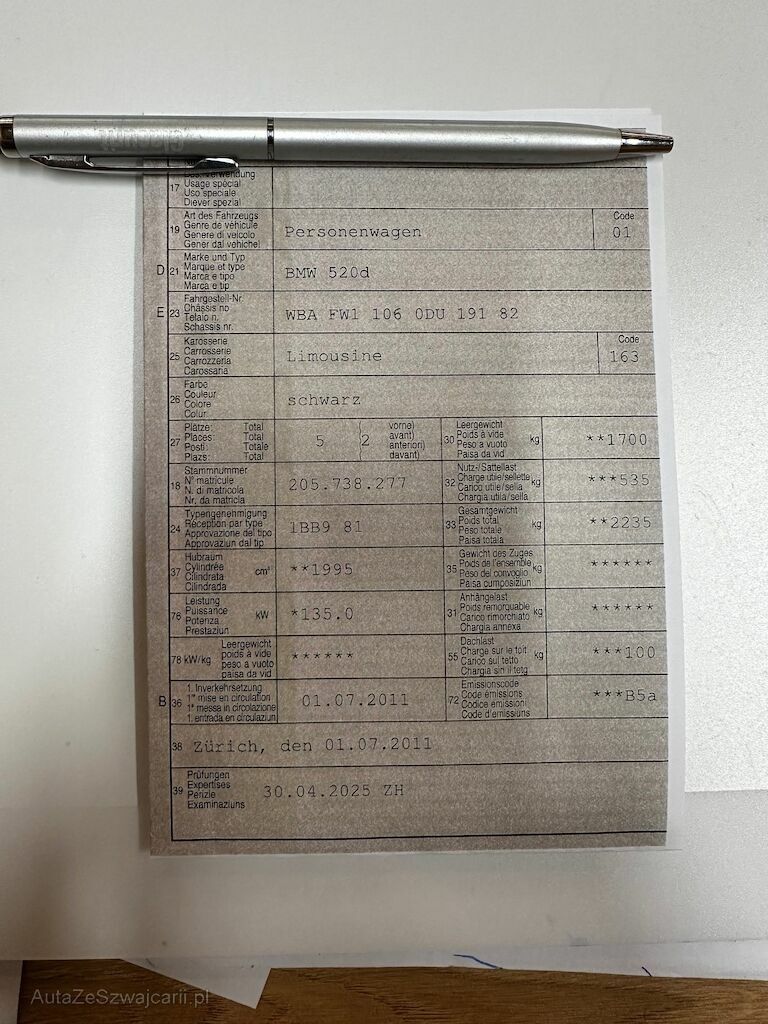 Bes. Verwendung
17 Usage spécial
Uso speciale
Diever spezial
Art des Fahrzeugs
19 Genre de véhicule
Genere di veicolo
Gener dal vehichel
Personenwagen
Code
01
Marke und Typ
D 21 Marque et type
Marca e tipo
Marca e tip
BMW 520d
Fahrgestell-Nr.
E 23 Châssis no
Telaio n.
Schassis nr.
WBA FW1 106 0DU 191 82
Karosserie
25 Carrosserie
Carrozzeria
Carossaria
Limousine
Code
163
Farbe
26 Couleur
Colore
Colur
schwarz
Plätze: Total
27 Places: Total
Posti: Totale
Plazs: Total
5 (2 vorne)
avant)
anteriori)
davant)
Leergewicht
30 Poids à vide kg
Peso a vuoto
Paisa da vid
**1700
Stammnummer
18 N° matricule
N. di matricola
Nr. da matricla
205.738.277
Nutz-/Sattellast
32 Charge utile/sellette kg
Carico utile/sella
Chargia utila/sella
***535
Typengenehmigung
24 Réception par type
Approvazione del tipo
Approvaziun dal tip
1BB9 81
Gesamtgewicht
33 Poids total kg
Peso totale
Paisa totala
**2235
Hubraum
37 Cylindrée cm³
Cilindrata
Cilindrada
**1995
Gewicht des Zuges
35 Poids de l'ensemble kg
Peso del convoglio
Paisa cumposiziun
******
Leistung
76 Puissance kW
Potenza
Prestaziun
*135.0
Anhängelast
31 Poids remorquable kg
Carico rimorchiato
Chargia annexa
******
Leergewicht
78 kW/kg poids à vide
peso a vuoto
paisa da vid
******
Dachlast
55 Charge sur le toit kg
Carico sul tetto
Chargia sin il tetg
***100
1. Inverkehrsetzung
B 36 1re mise en circulation
1a messa in circolazione
1. entrada en circulaziun
01.07.2011
Emissionscode
72 Code émissions
Codice emissioni
Code d'emissiuns
***B5a
38 Zürich, den 01.07.2011
Prüfungen
39 Expertises
Perizie
Examinaziuns
30.04.2025 ZH
AutaZeSzwajcarii.pl